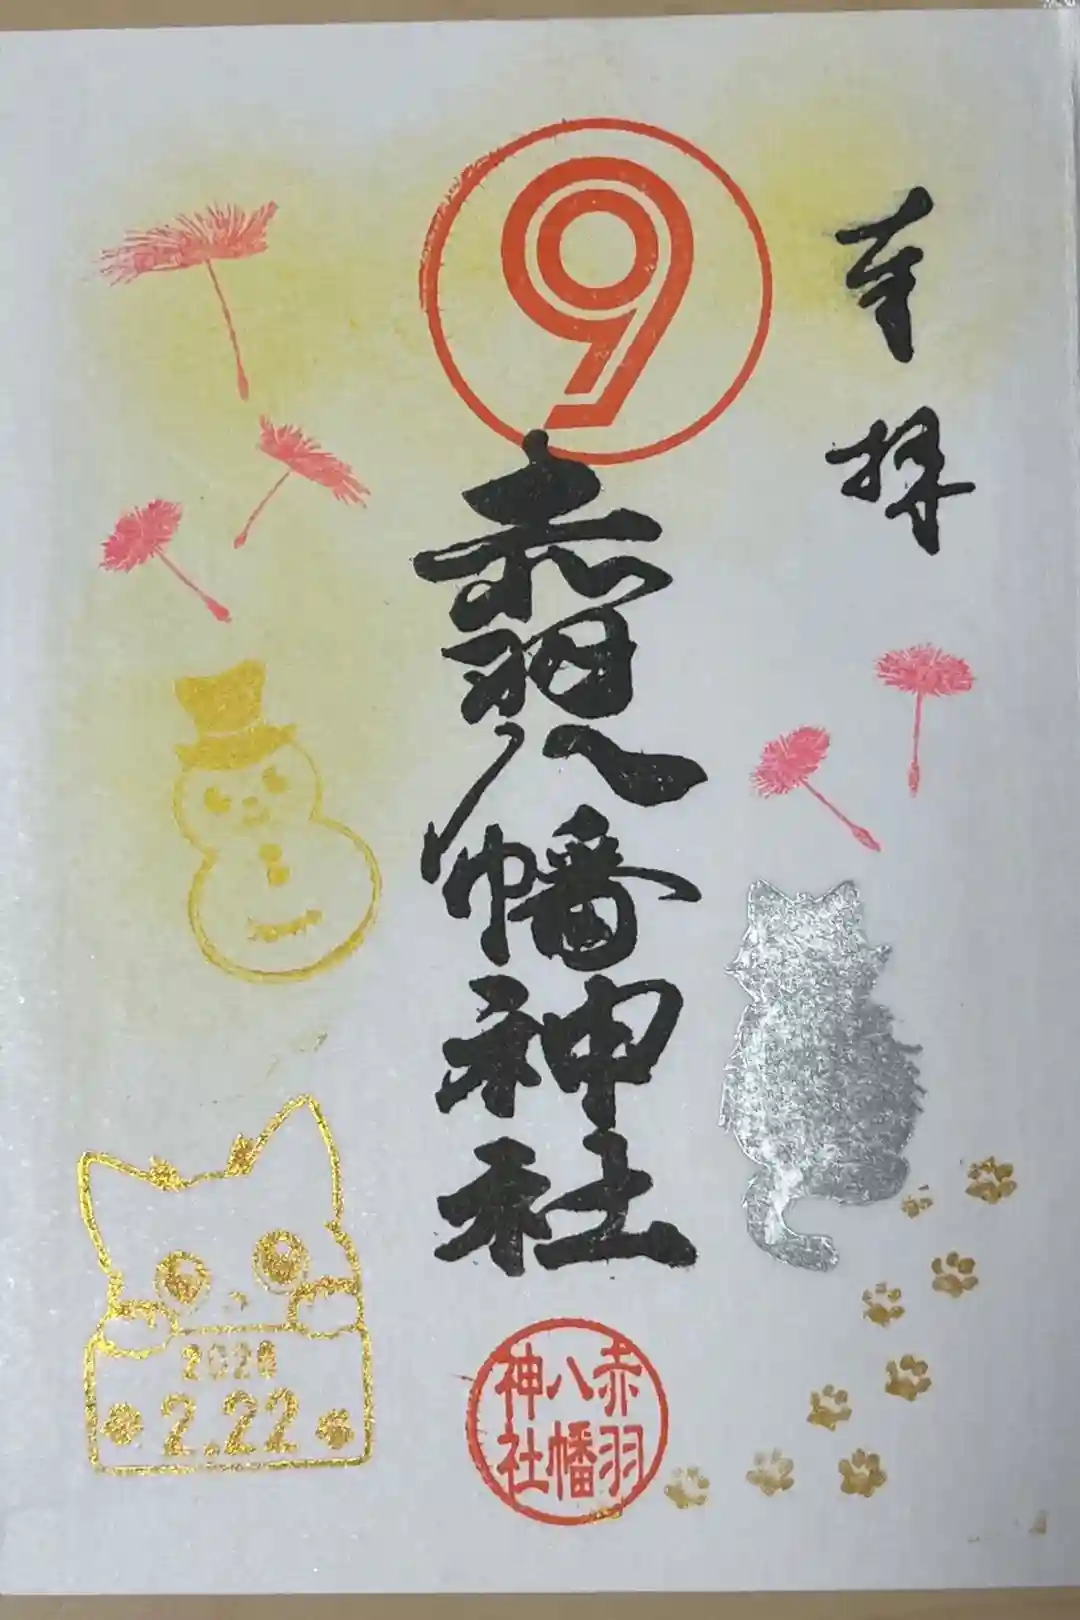 奉拝
9
赤羽八幡神社
赤羽
八幡
神社
2.22